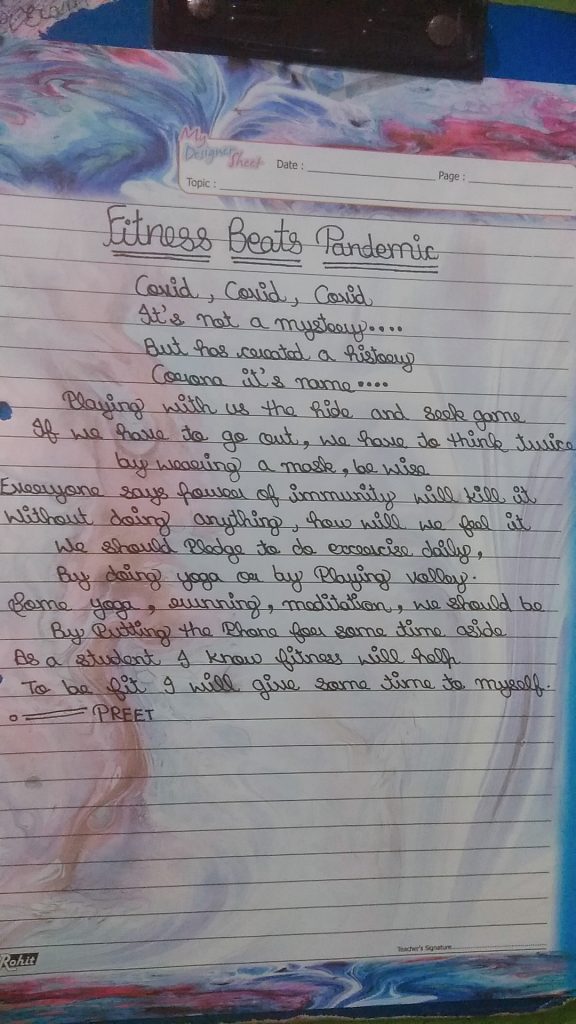 My
Designer
Sheet
Date :
Page :
Topic :
Fitness Beats Pandemic
Covid , Covid , Covid
It's not a mystery....
But has created a history
Corona it's name....
Playing with us the hide and seek game
If we have to go out, we have to think twice
by wearing a mask, be wise
Everyone says power of immunity will kill it
Without doing anything, how will we feel it
We should Pledge to do excercise daily,
By doing yoga or by Playing volley.
Some yoga, running, meditation, we should be
By Putting the Phone for some time aside
As a student I know fitness will help
To be fit I will give some time to myself.
PREET
Teacher's Signature
Rohit